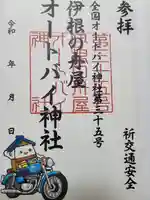 参拝
全国オートバイ神社第三十五号
祈交通安全
伊根の舟屋
オートバイ神社
令和 年 月 日